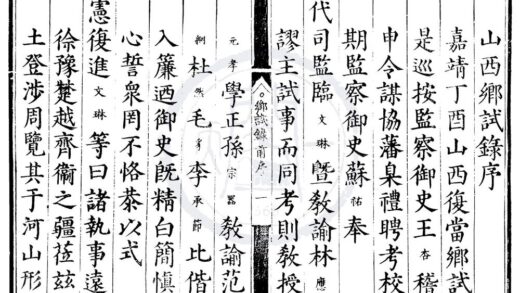 山西鄉試錄序
嘉靖丁酉山西復當鄉試
是巡按監察御史王杏稽
申令謀協藩臬禮聘考校
期監察御史蘇祐奉
代司監臨文琳曁敎諭林應
謬主試事而同考則敎授
鄉試錄前序 一
元孝學正孫宗器敎諭范
杜毛李承節比偕
入簾迺御史旣精白簡愼
心誓衆罔不恪恭以式
憲復進文琳等曰諸執事遠
徐豫楚越齊衞之疆莅玆
土登涉周覽其于河山形